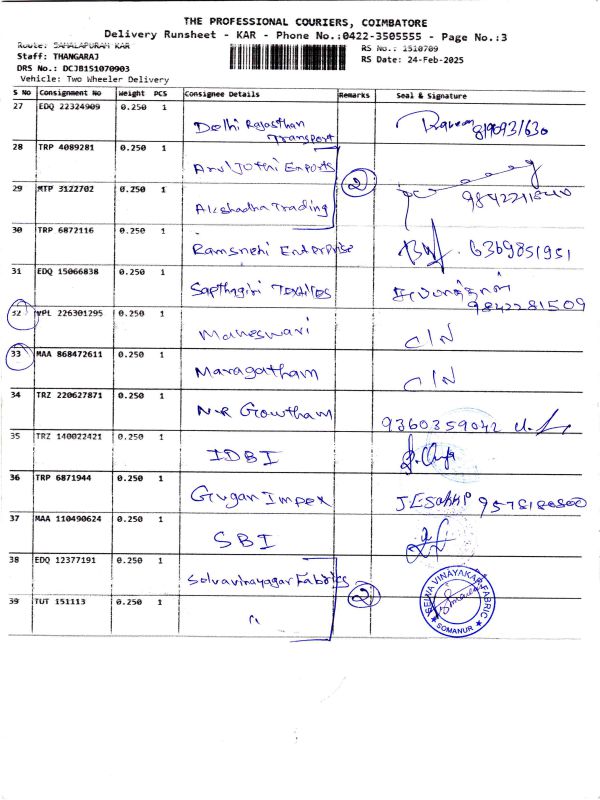 THE PROFESSIONAL COURIERS, COIMBATORE
Delivery Runsheet - KAR - Phone No.:0422-3505555 - Page No.:3
Route: SAMALAPURAM KAR
RS No.: 1510709
Staff: THANGARAJ
RS Date: 24-Feb-2025
DRS No.: DCJB151070903
Vehicle: Two Wheeler Delivery
S No Consignment No Weight PCS Consignee Details Remarks Seal & Signature
27 EDQ 22324909 0.250 1
Delhi Rajasthan
Transport
28 TRP 4089281 0.250 1
Arul Jothi Exports
2
29 MTP 3122702 0.250 1
Akshadha Trading
30 TRP 6872116 0.250 1
Ramsnehi Enterprise 6369851951
31 EDQ 15066838 0.250 1
Sapthagiri Textiles
9842281509
32 VPL 226301295 0.250 1
Maheswari C/N
33 MAA 868472611 0.250 1
Maragatham C/N
34 TRZ 220627871 0.250 1
N.R Gowtham 9360359042
35 TRZ 140022421 0.250 1
IDBI
36 TRP 6871944 0.250 1
Gugan Impex
37 MAA 110490624 0.250 1
SBI
38 EDQ 12377191 0.250 1
Selvavinayagar Fabrics 2
SELVA VINAYAKAR FABRIC
SOMANUR
39 TUT 151113 0.250 1
"